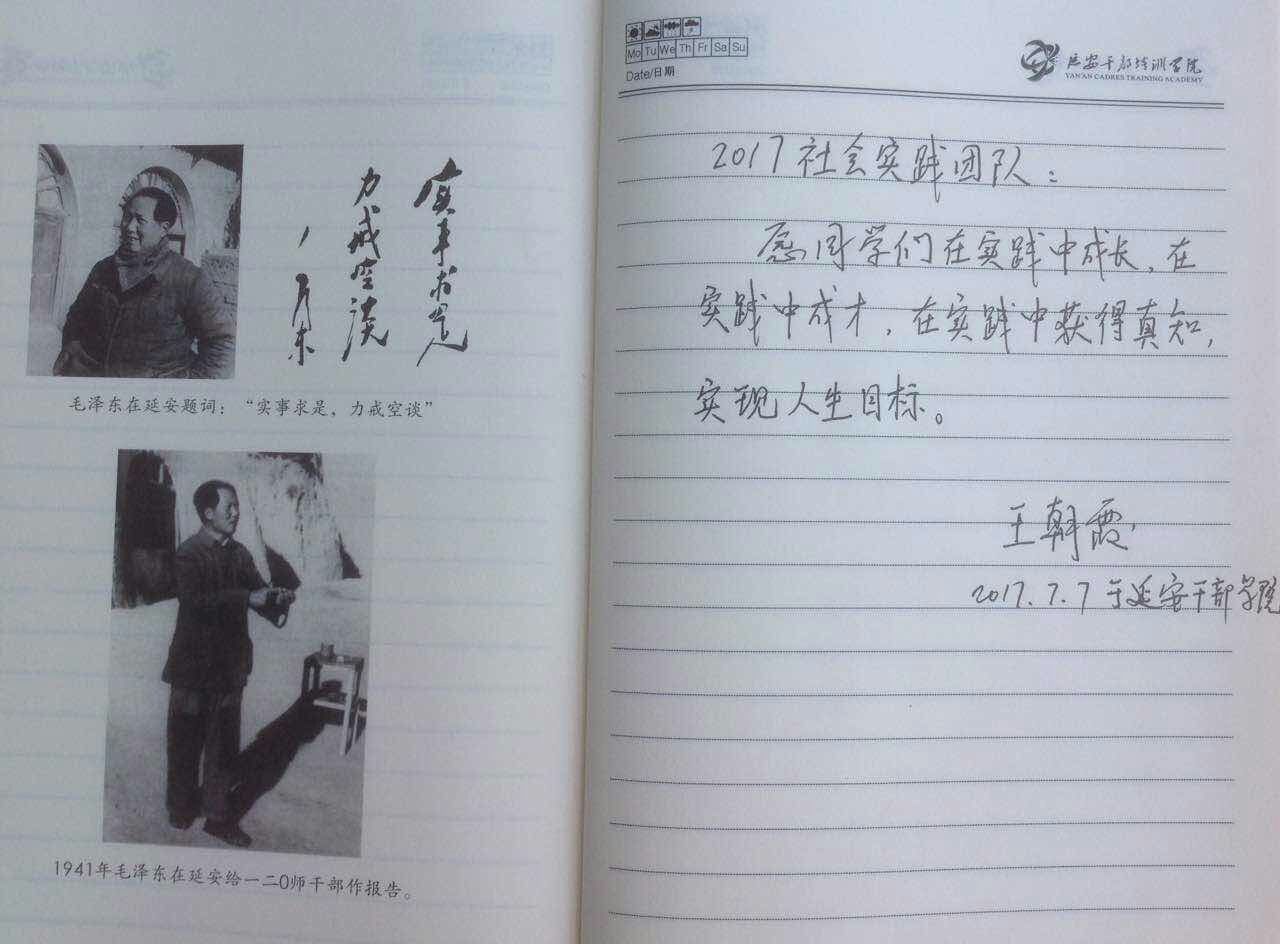 实事求是
力戒空谈
毛泽东
毛泽东在延安题词：“实事求是，力戒空谈”
1941年毛泽东在延安给一二0师干部作报告。
Mo Tu We Th Fr Sa Su
Date/日期
延安干部培训学院
YAN'AN CADRES TRAINING ACADEMY
2017社会实践团队：
愿同学们在实践中成长，在
实践中成才，在实践中获得真知，
实现人生目标。
王朝霞
2017.7.7于延安干部学院